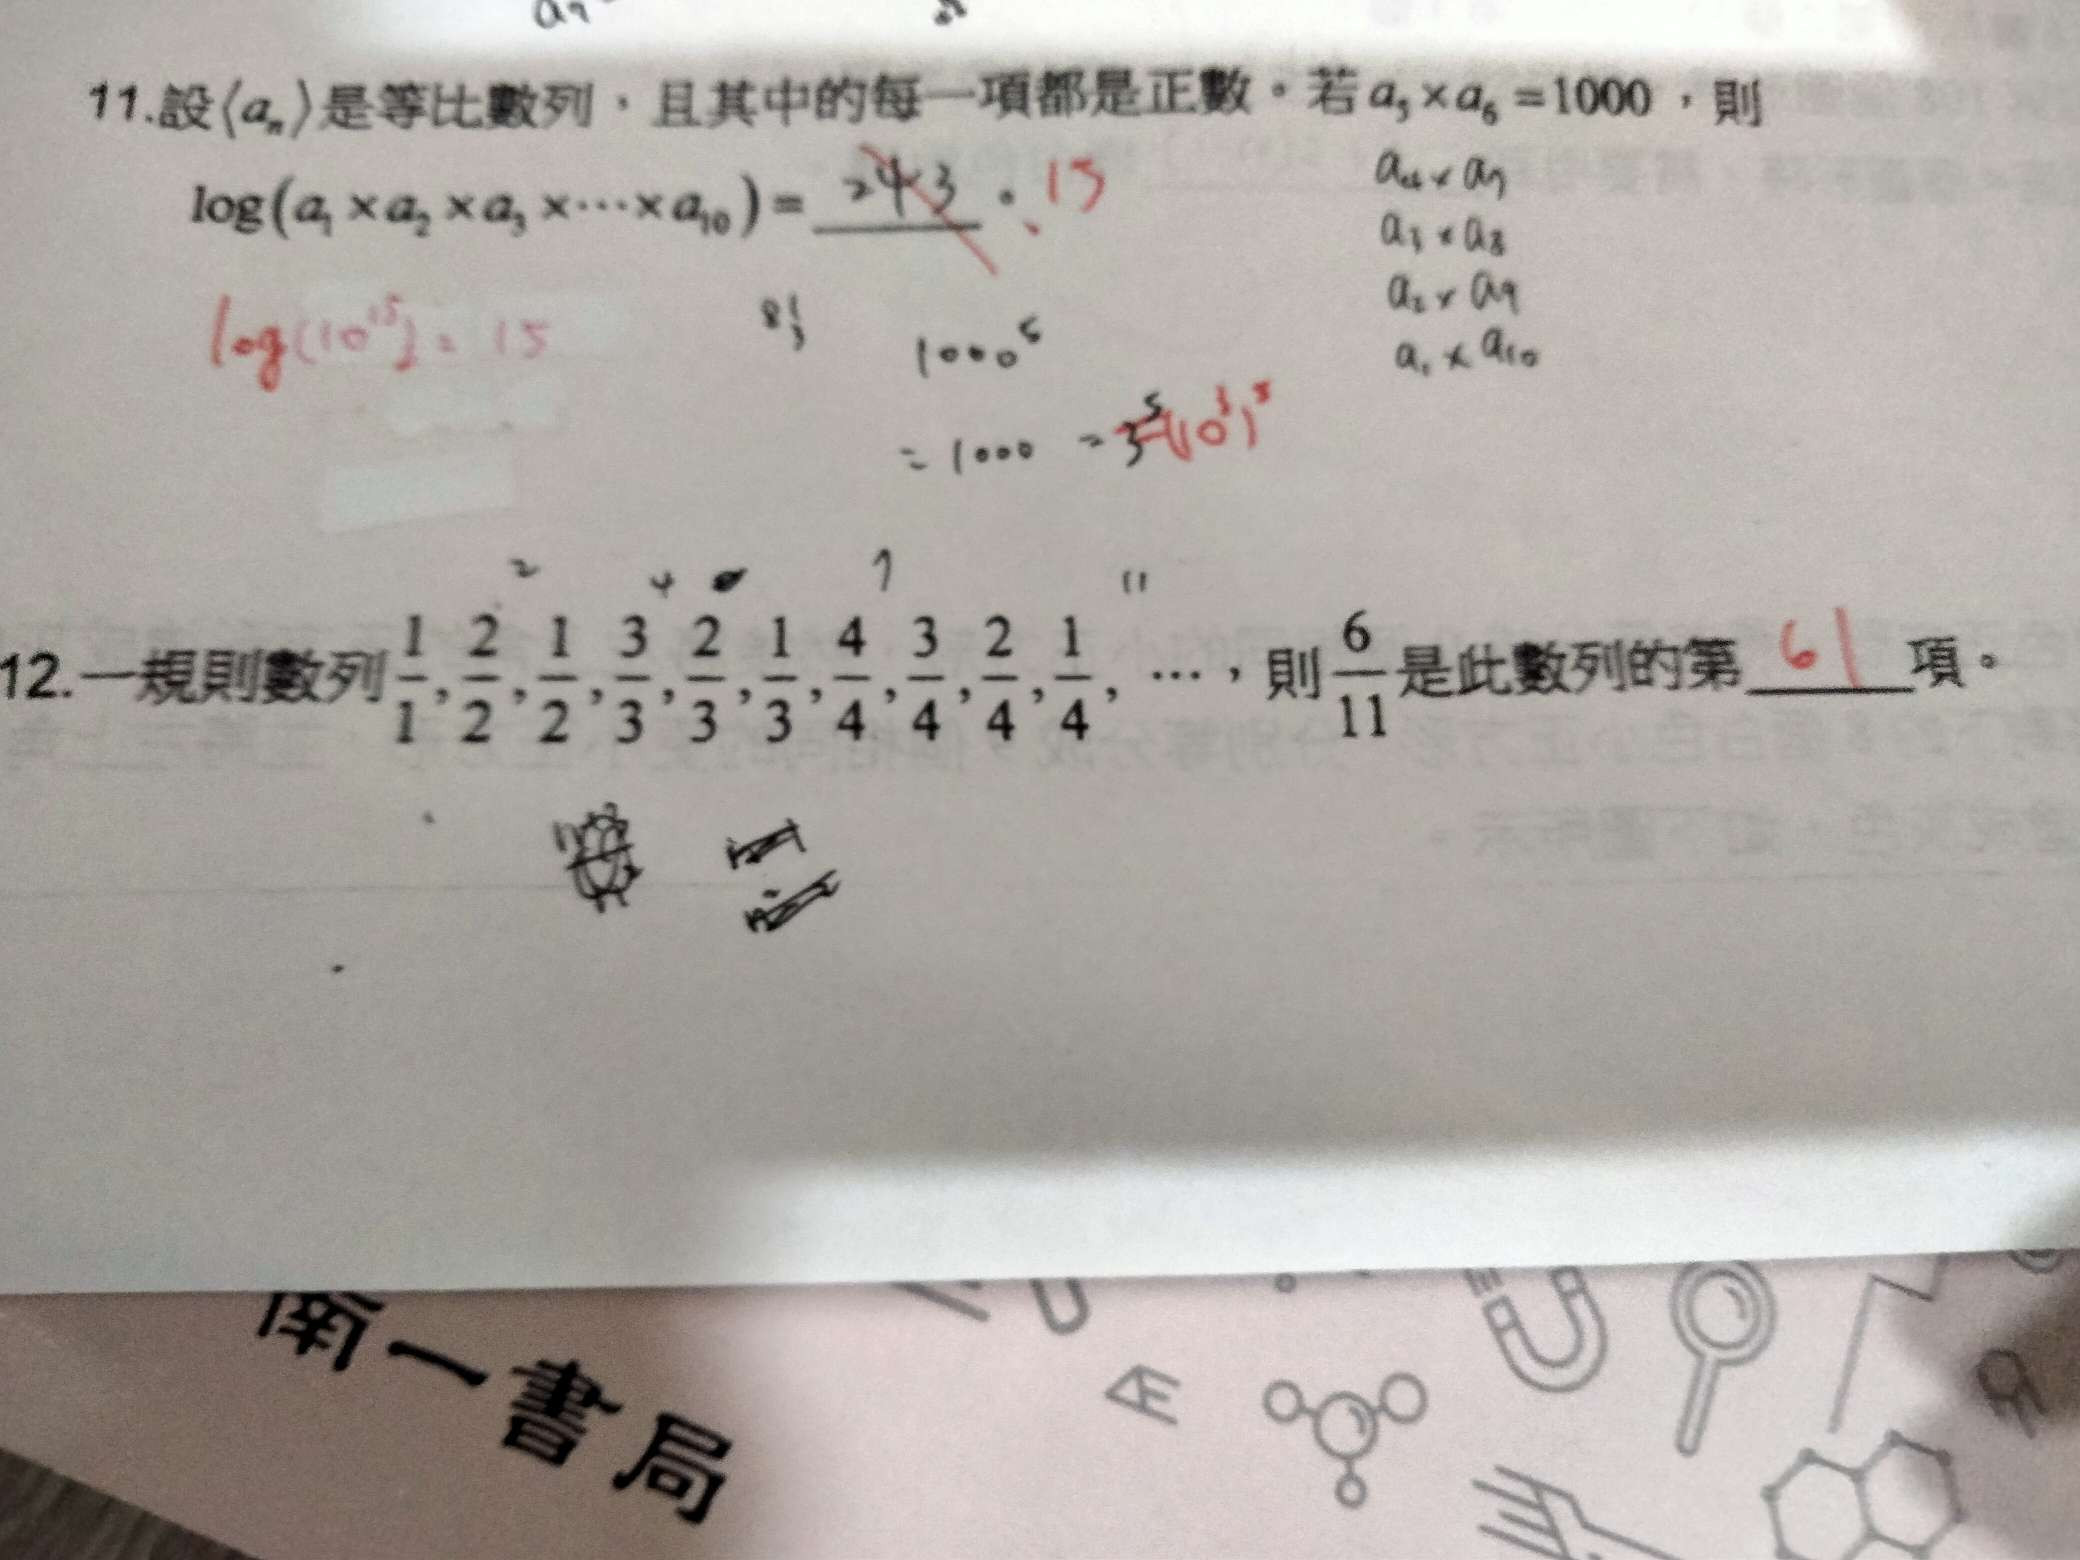 11.設⟨aₙ⟩是等比數列，且其中的每一項都是正數。若 a₅×a₆=1000，則
a₄×a₇
log(a₁×a₂×a₃×⋯×a₁₀)= 243 。 15
a₃×a₈
a₂×a₉
log(10¹⁵)=15
1000⁵
a₁×a₁₀
=1000 =3⁵ (10³)⁵
2 4 7 11
12.一規則數列 1/1, 2/2, 1/2, 3/3, 2/3, 1/3, 4/4, 3/4, 2/4, 1/4, ⋯，則 6/11 是此數列的第 61 項。
南一書局